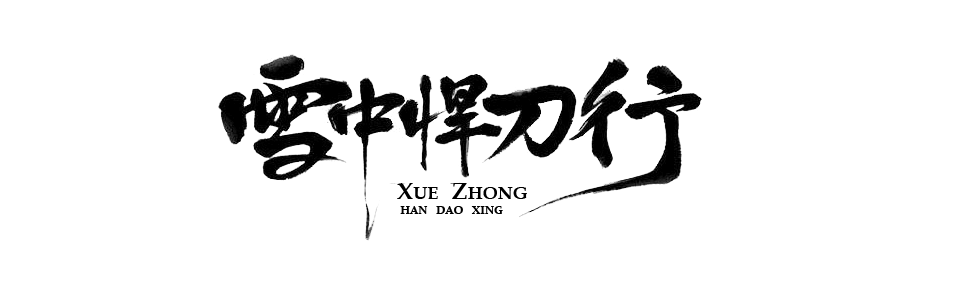 雪中悍刀行
XUE ZHONG
HAN DAO XING